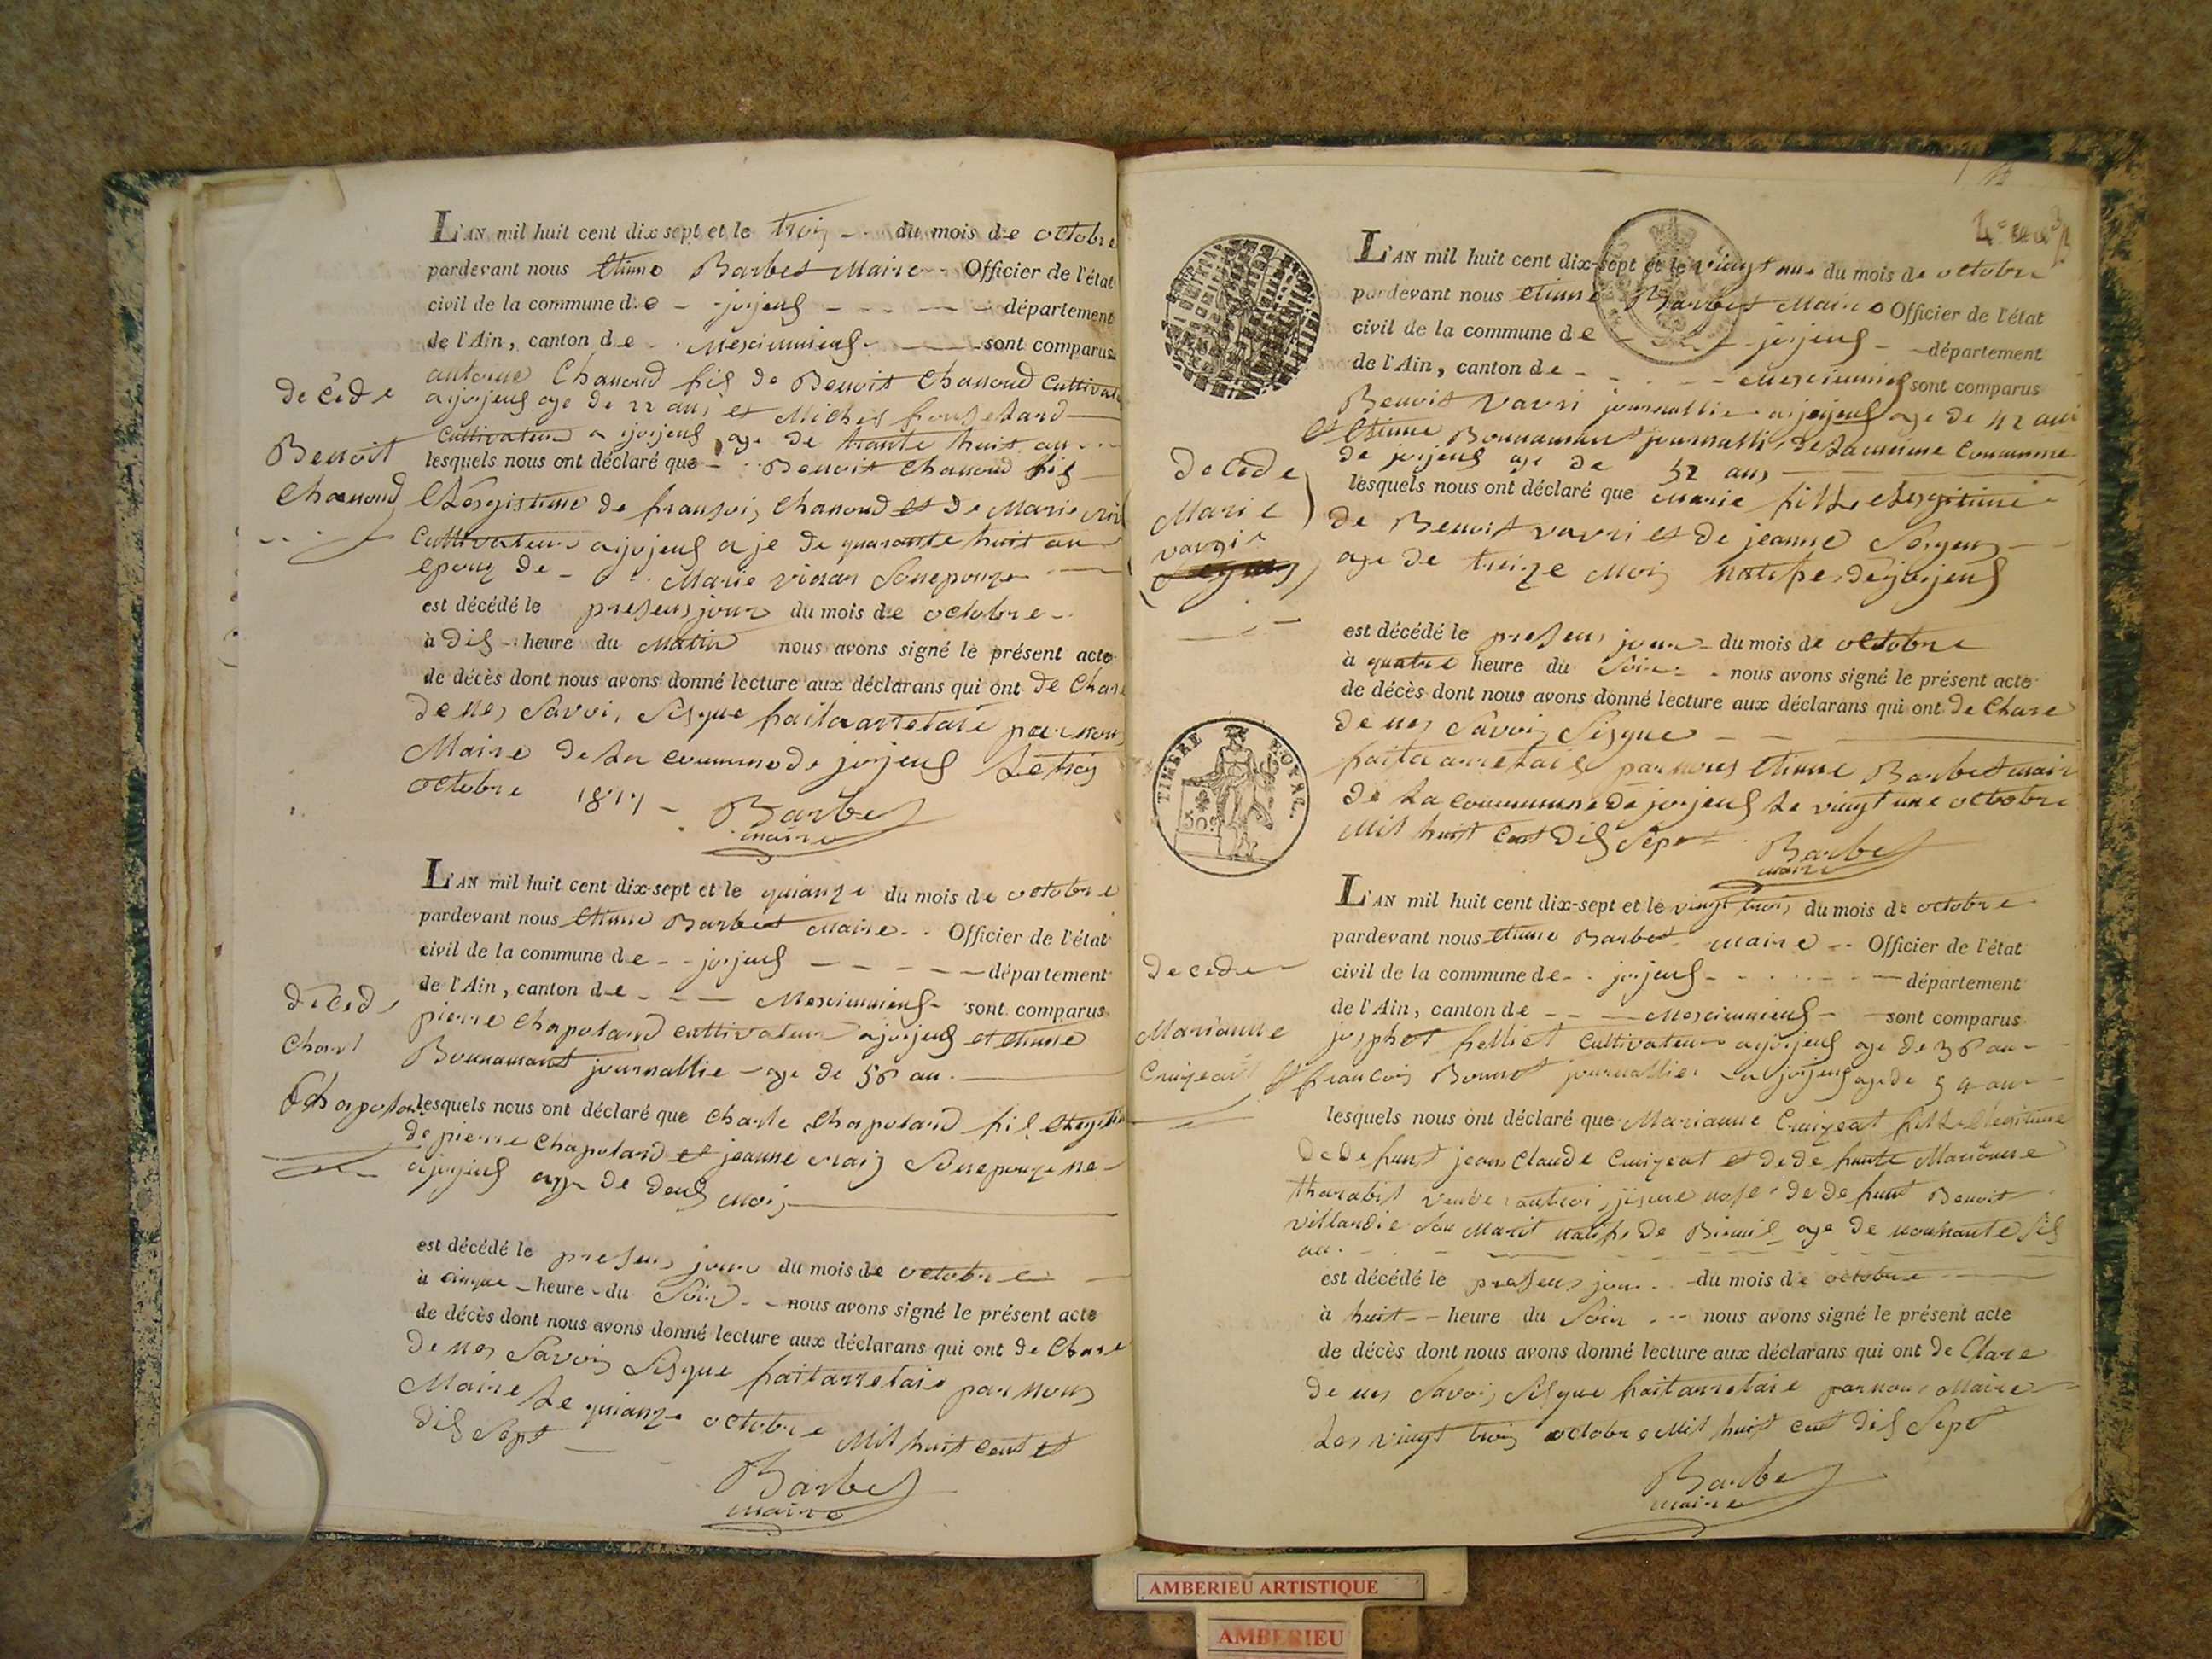 L'AN mil huit cent dix-sept et le trois du mois de octobre
pardevant nous Etiene Barbet Maire Officier de l'état
civil de la commune de joyjeus département
de l'Ain, canton de Meximieus sont comparus
antoine Chanoud fils de Benoit Chanoud Cultivat
decede
ajoyjeus age de 22 ans et Michel
Benoit
Cultivateur a joyjeus age de trante huit an
lesquels nous ont déclaré que Benoit Chanoud fils
Chanoud
de fransois Chanoud et de Marie
Cultivateur ajoyjeus aje de quarante huit an
epoux de Marie
est décédé le presens jour du mois de octobre
à dis heure du Matin nous avons signé le présent acte
de décès dont nous avons donné lecture aux déclarans qui ont de Clare
de nes Savoi Sisgne fait a arretaié par nous
Maire de la commune de joyjeus Le trois
octobre 1817
Barbet
maire
L'AN mil huit cent dix-sept et le quianze du mois de octobre
pardevant nous Etiene Barbet Maire Officier de l'état
civil de la commune de joyjeus département
de l'Ain, canton de Meximieus sont comparus
decede
pierre Chapoland cultivateur ajoyjeus et etiene
Charl
Bonnamant journallie age de 56 an
Chapolan
lesquels nous ont déclaré que Charle Chapoland fil
de pierre Chapoland et jeanne
ajoyjeus age de deus mois
est décédé le presens jour du mois de octobre
à cinque heure du Soir nous avons signé le présent acte
de décès dont nous avons donné lecture aux déclarans qui ont de Clare
de nes Savois Sisgne fait arretaie par nous
Maire Le quianze octobre Mil huit cent et
dis Sept
Barbet
maire
L'AN mil huit cent dix-sept et le vingt une du mois de octobre
pardevant nous etiene Barbet Maire Officier de l'état
civil de la commune de joyjeus département
de l'Ain, canton de Meximieus sont comparus
Benoit Vavri journallie ajoyjeus age de 42 ans
Et Etiene Bonnamant journalli de La meime Commune
de joyjeus age de 52 ans
decede
lesquels nous ont déclaré que Marie fille
Marie
de Benoit vavri et de jeanne
age de treize Mois natife de joyjeus
est décédé le presens jour du mois de octobre
à quatre heure du Soir nous avons signé le présent acte
de décès dont nous avons donné lecture aux déclarans qui ont de Clare
de nes Savois Sisgne
fait a arretaié par nous Etiene Barbet mair
de La commune de joyjeus Le vingt une octobre
Mil huit Cent dis Sept
Barbet
maire
TIMBRE ROYAL
50c
L'AN mil huit cent dix-sept et le vingt trois du mois de octobre
pardevant nous etiene Barbet maire Officier de l'état
decede
civil de la commune de joyjeus département
de l'Ain, canton de Meximieus sont comparus
Marianne
josphet felliet Cultivateur ajoyjeus age de 36 an
Cruizeat
Et francois Bonnet journallier a joyjeus age de 54 an
lesquels nous ont déclaré que Marianne Cruizeat fille
de defunt jean Claude Cruizeat et de defunte Marianne
de defunt Benoit
son Marit natife de age de nonnante sis
an
est décédé le presens jour du mois de octobre
à huit heure du Soir nous avons signé le présent acte
de décès dont nous avons donné lecture aux déclarans qui ont de Clare
de nes Savois Sisgne fait arretaie par nous Maire
Les vingt trois octobre Mil huit cent dis Sept
Barbet
maire
AMBERIEU ARTISTIQUE
AMBERIEU